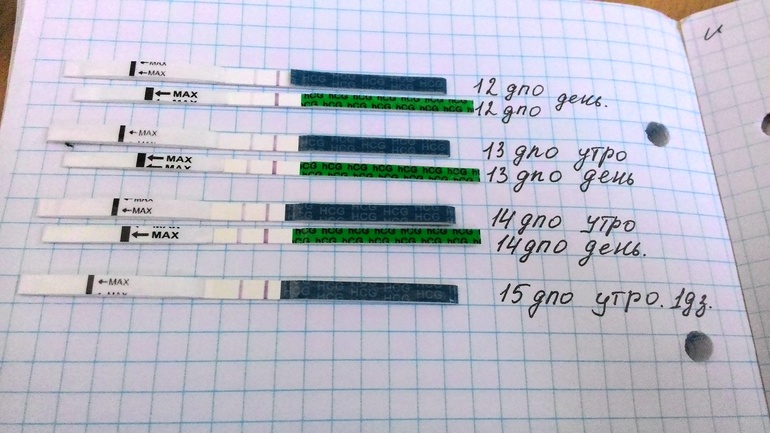 ←MAX
←MAX
HCG HCG HCG HCG
12 дпо день.
←MAX
hCG hCG hCG hCG hCG hCG
12 дпо
←MAX
HCG HCG HCG HCG
13 дпо утро
←MAX
hCG hCG hCG hCG hCG hCG
13 дпо день
←MAX
HCG HCG HCG HCG
14 дпо утро
←MAX
hCG hCG hCG hCG hCG hCG
14 дпо день.
←MAX
HCG HCG HCG HCG
15 дпо утро. 1дз.